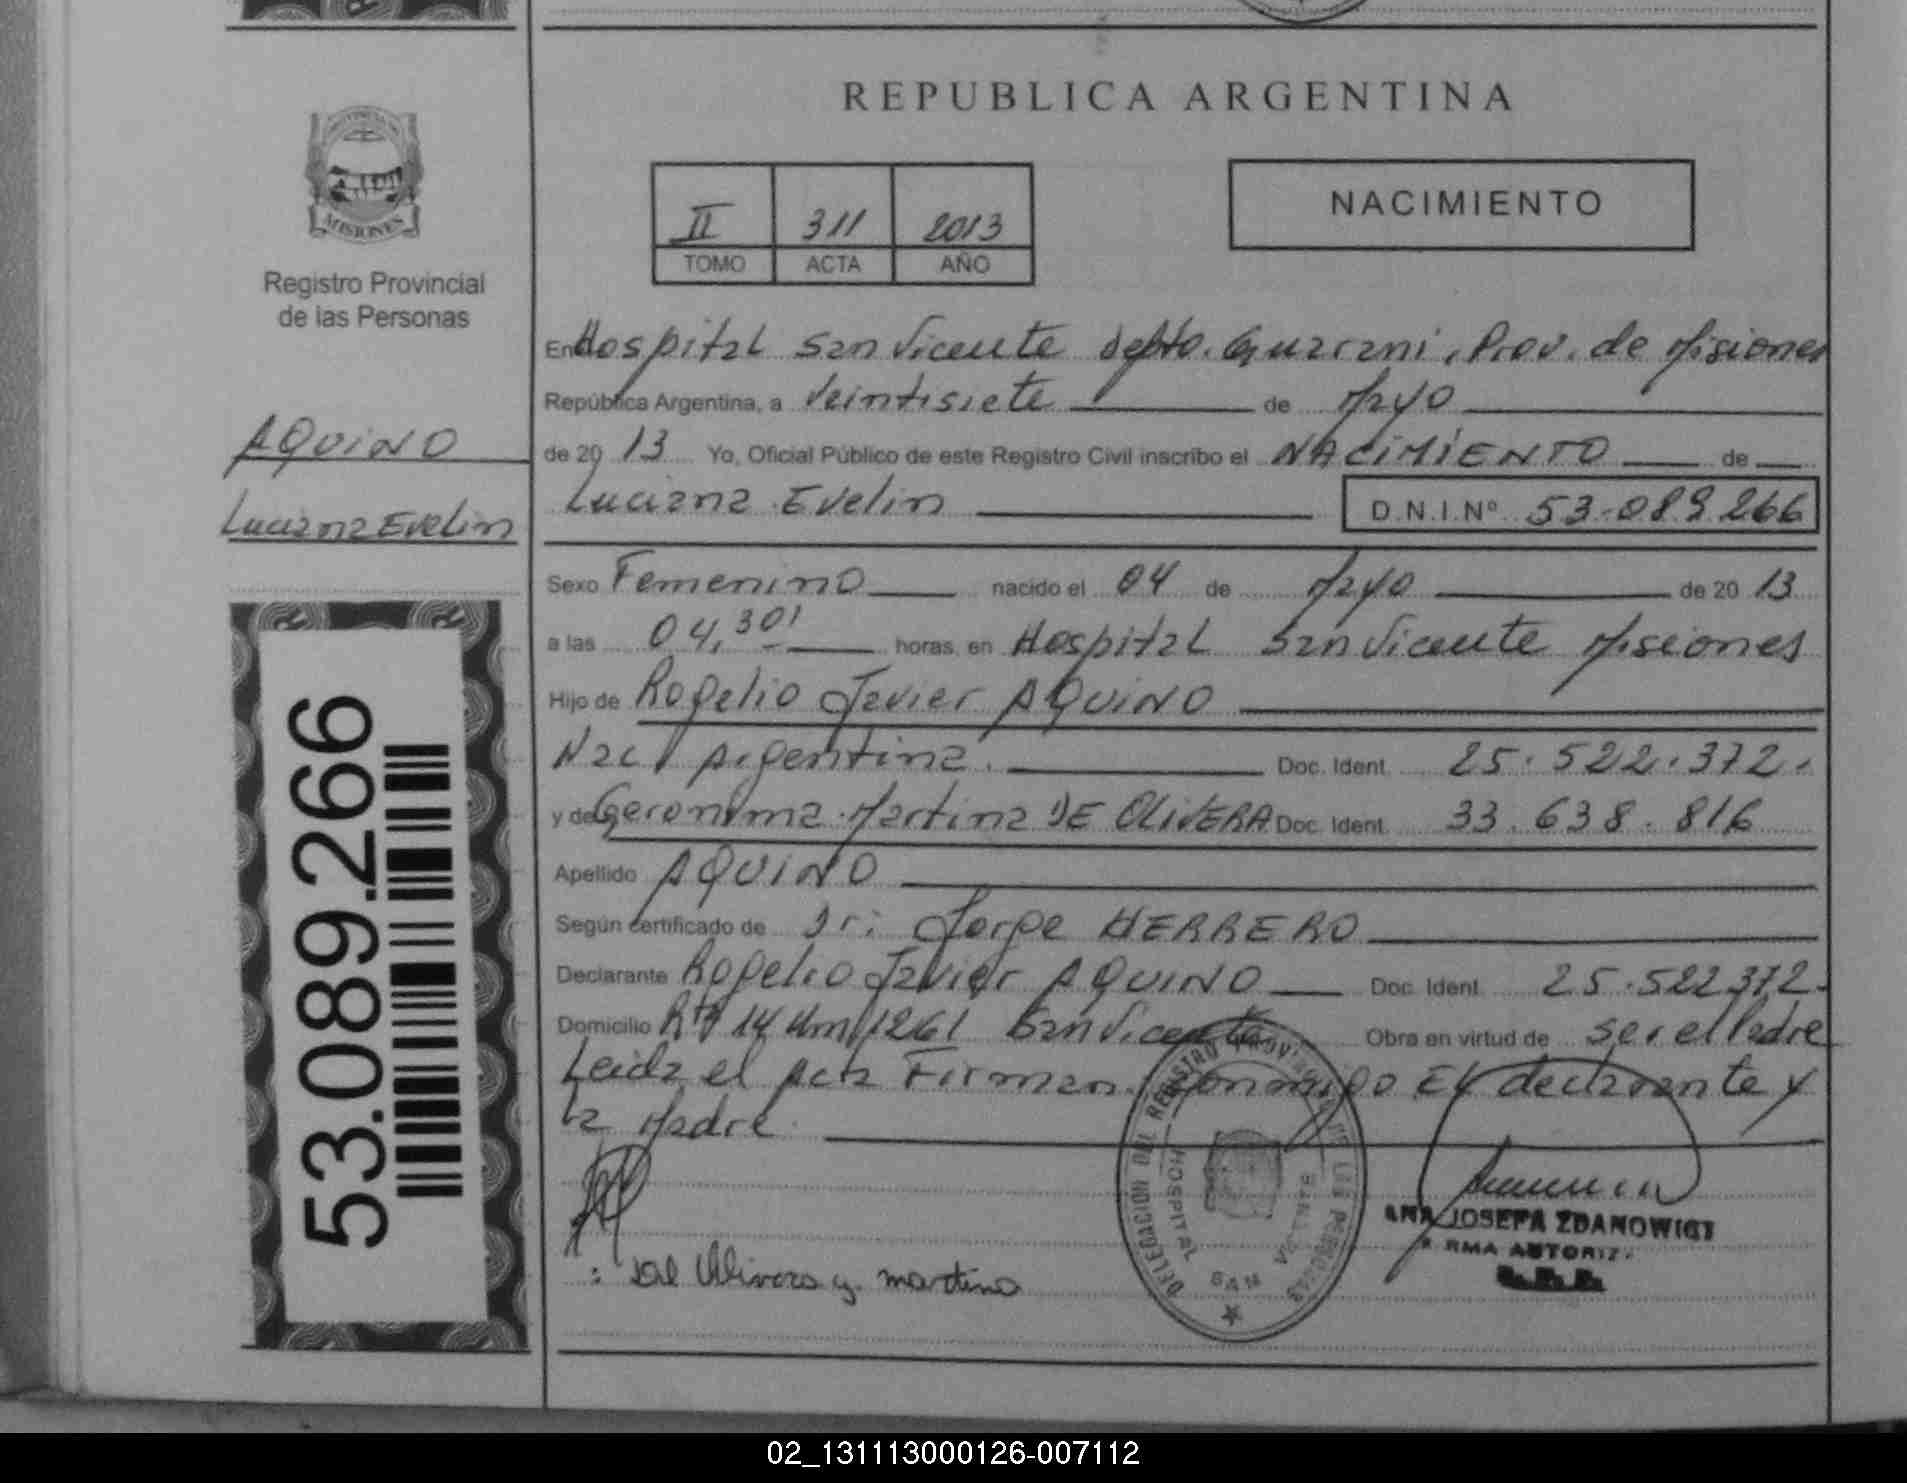 REPUBLICA ARGENTINA
MISIONES
Registro Provincial
de las Personas
II 311 2013
TOMO ACTA AÑO
NACIMIENTO
AQUINO
Luciana Evelin
53.089.266
En Hospital San Vicente depto. Guarani, Prov. de Misiones
República Argentina, a veintisiete de Mayo
de 20 13 Yo, Oficial Público de este Registro Civil inscribo el NACIMIENTO de
Luciana Evelin D.N.I.Nº 53.089.266
Sexo Femenino nacido el 04 de Mayo de 20 13
a las 04,30' horas, en Hospital San Vicente Misiones
Hijo de Rogelio Javier AQUINO
Nac. Argentina. Doc. Ident. 25.522.372.
y de Geronima Martina DE OLIVERA Doc. Ident. 33.638.816
Apellido AQUINO
Según certificado de Dr: Jorge HERRERO
Declarante Rogelio Javier AQUINO Doc. Ident. 25.522372.
Domicilio Rta 14 Km 1261 San Vicente Obra en virtud de ser el Padre
Leida el Acta Firman conmigo El declarante y
la Madre.
DELEGACION DEL REGISTRO PROVINCIAL DE LAS PERSONAS
HOSPITAL SAN VICENTE
ANA JOSEFA ZDANOWICZ
FIRMA AUTORIZ.
martina
02_131113000126-007112